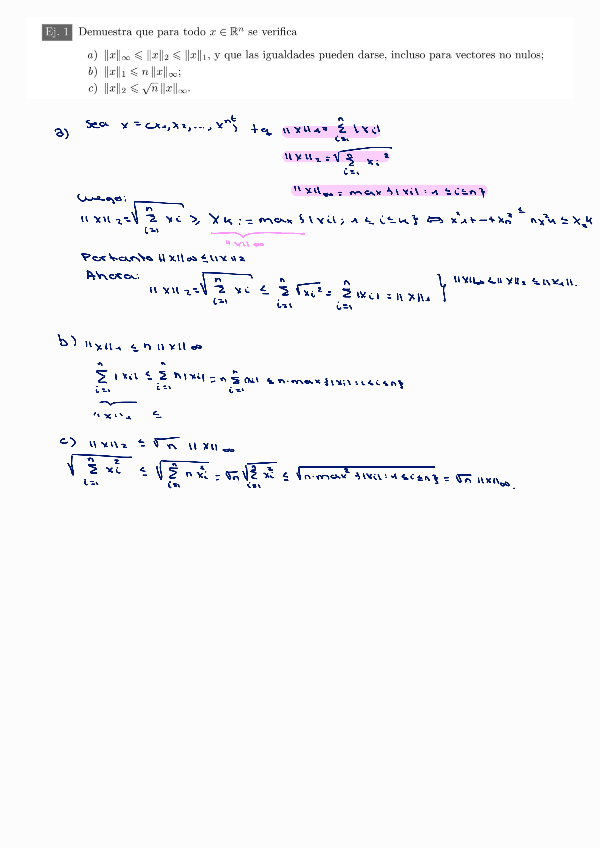 Ej. 1 Demuestra que para todo x ∈ ℝⁿ se verifica
a) ‖x‖∞ ⩽ ‖x‖₂ ⩽ ‖x‖₁, y que las igualdades pueden darse, incluso para vectores no nulos;
b) ‖x‖₁ ⩽ n ‖x‖∞;
c) ‖x‖₂ ⩽ √n ‖x‖∞.
a) Sea x = (x₁, x₂, ..., xₙᵗ) tq ‖x‖₁ = Σᵢ₌₁ⁿ |xᵢ|
‖x‖₂ = √(Σᵢ₌₁ⁿ xᵢ²)
‖x‖∞ = max {|xᵢ| : 1 ≤ i ≤ n}
Luego:
‖x‖₂ = √(Σᵢ₌₁ⁿ xᵢ) ≥ xₖ := max {|xᵢ|; 1 ≤ i ≤ n} ⇔ x₁² + ... + xₙ² ≤ n xₖ²
‖x‖∞
Por tanto ‖x‖∞ ≤ ‖x‖₂
Ahora:
‖x‖₂ = √(Σᵢ₌₁ⁿ xᵢ) ≤ Σᵢ₌₁ⁿ √xᵢ² = Σᵢ₌₁ⁿ |xᵢ| = ‖x‖₁ } ‖x‖∞ ≤ ‖x‖₂ ≤ ‖x‖₁.
b) ‖x‖₁ ≤ n ‖x‖∞
Σᵢ₌₁ⁿ |xᵢ| ≤ Σᵢ₌₁ⁿ n|xᵢ| = n Σᵢ₌₁ⁿ |xᵢ| ≤ n · max {|xᵢ| : 1 ≤ i ≤ n}
‖x‖₁ ≤
c) ‖x‖₂ ≤ √n ‖x‖∞
√(Σᵢ₌₁ⁿ xᵢ²) ≤ √(Σᵢ₌₁ⁿ n xᵢ²) = √n √(Σᵢ₌₁ⁿ xᵢ²) ≤ √(n · max² {|xᵢ| : 1 ≤ i ≤ n}) = √n ‖x‖∞.